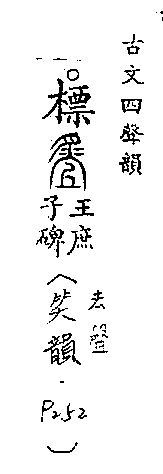 古文四聲韻
標
王庶
子碑
(笑韻
去聲
·P252)